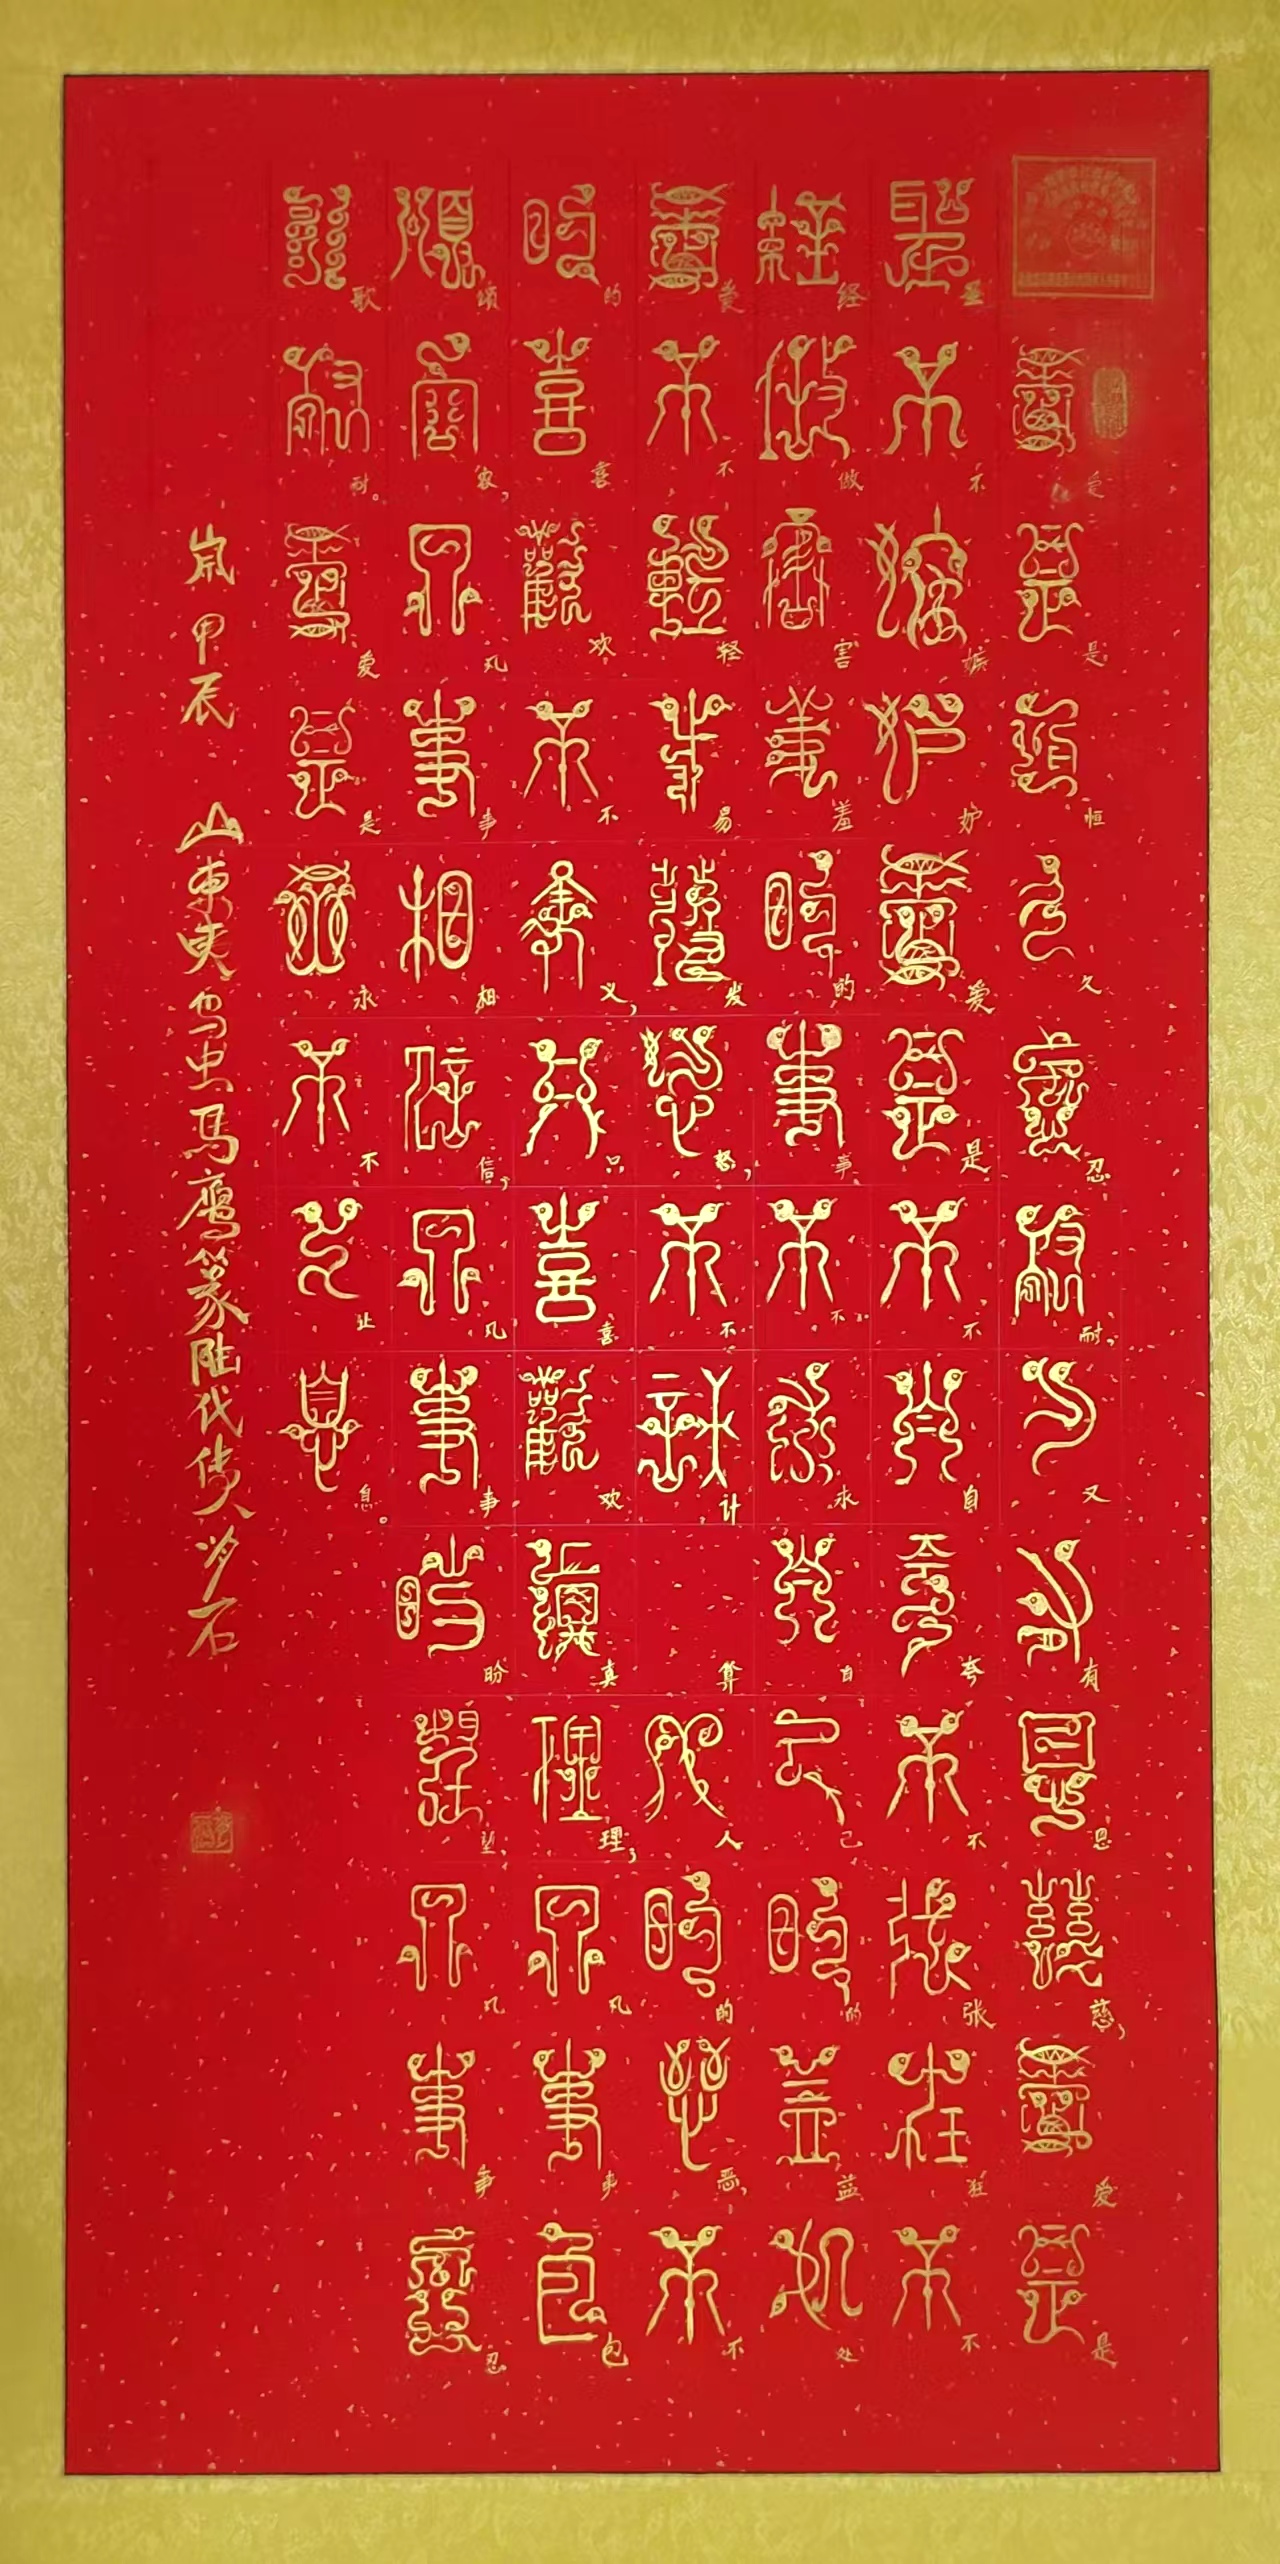 圣经爱的颂歌
爱是恒久忍耐,又有恩慈,爱是
不嫉妒爱是不自夸不张狂不
做害羞的事不求自己的益处
不轻易发怒,不计算人的恶,不
喜欢不义,只喜欢真理,凡事包
容,凡事相信,凡事盼望,凡事忍
耐。爱是永不止息。
岁甲辰 山东 鸟虫 鹰篆陆代传人 石